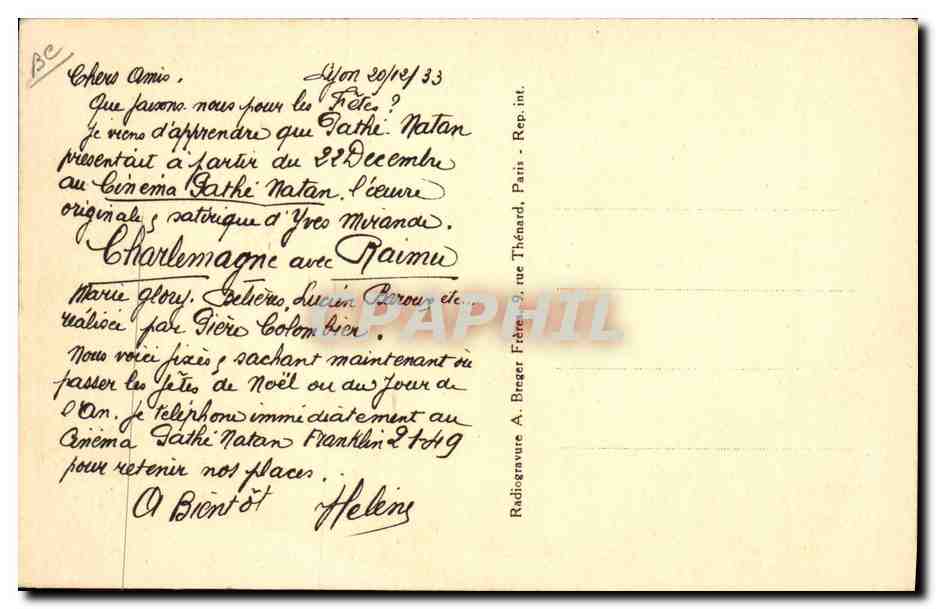 BC
Chers Amis. Lyon 20/12/33
Que faisons nous pour les Fêtes?
Je viens d'apprendre que Pathé Natan
présentait à partir du 22 Decembre
au Cinéma Pathé Natan, l'œuvre
originale, satirique d'Yves Mirande.
Charlemagne avec Raimu
Marie Glory. Bélières, Lucien Baroux etc...
réalisée par Pière Colombier.
Nous voici fixés, sachant maintenant où
passer les fêtes de Noël ou du Jour de
l'An. Je téléphone immédiatement au
Cinéma Pathé Natan Franklin 21-49
pour retenir nos places.
A Bientôt Hélène
Radiogravure A. Breger Frères, 9, rue Thénard, Paris - Rep. int.
CPAPHIL